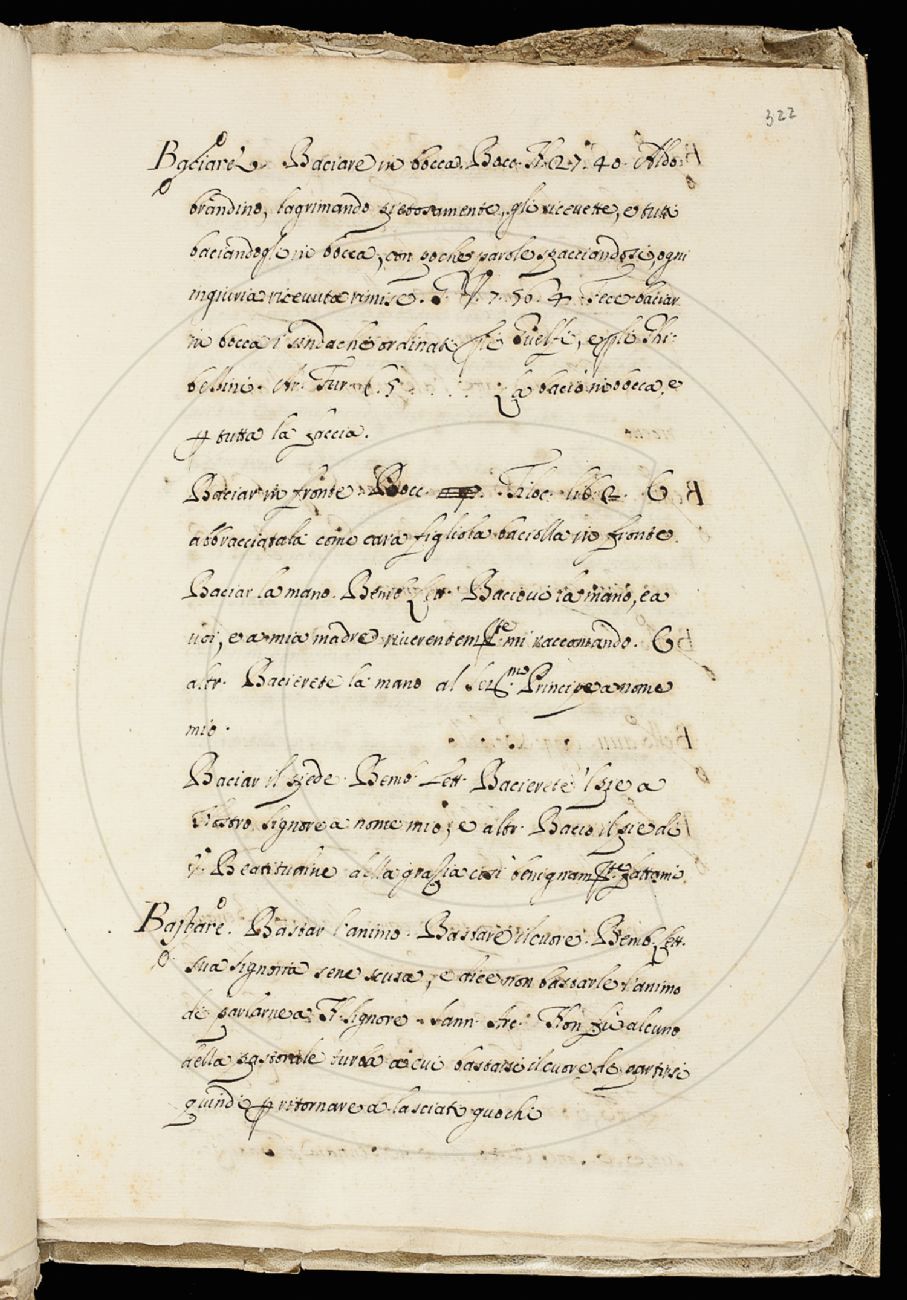 322
Baciare. Baciare in bocca. Bocc. N. 27. 40. Aldo-
brandino, lagrimando pietosamente, gli ricevette, e tutti
baciandogli in bocca, con poche parole spacciandosi, ogni
ingiuria ricevuta rimise. G. V. 7. 56. 4. Fece baciar
in bocca i sindachi ordinati p gli Guelfi, e p gli Ghi-
bellini. Ar. Fur. 6. 5 . . . La baciò in bocca, e
p tutta la faccia.
Baciar in fronte. Bocc. Filoc. lib. 2. E
abbracciatala come cara figliola baciolla in fronte.
Baciar la mano. Bemb. Lett. Baciovi la mano, e a
voi, e a mia madre riverentem.te mi raccomando. E
altr. Bacierete la mano al Ser.mo Principe a nome
mio.
Baciar il piede. Bemb. Lett. Bacierete 'l pie a
Nostro Signore a nome mio; e altr. Bacio il pie di
V. Beatitudine della grazia così benignam.te fattami.
Bastare. Bastar l'animo. Bastare il cuore. Bemb. Lett.
sua signoria sene scusa, e dice non bastarle l'animo
di parlarne a N. Signore. Sann. Arc. Non fu alcuno
della pastorale turba a cui bastasse il cuore di partirsi
quindi p ritornare a lasciati giochi